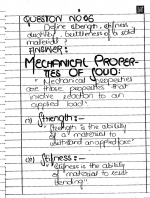 QUESTION NO 06
Define strength, stifness
ductility, brittleness of a solid
materials?
ANSWER:
MECHANICAL PROPER-
TIES OF SOLID:
"Mechanical properties
are those properties that
involve reaction to an
applied load."
(i) Strength:-
Strength is the ability
of a material to
withstand an applied load"
(ii) Stifness:-
Stifness is the ability
of material to resist
bending"